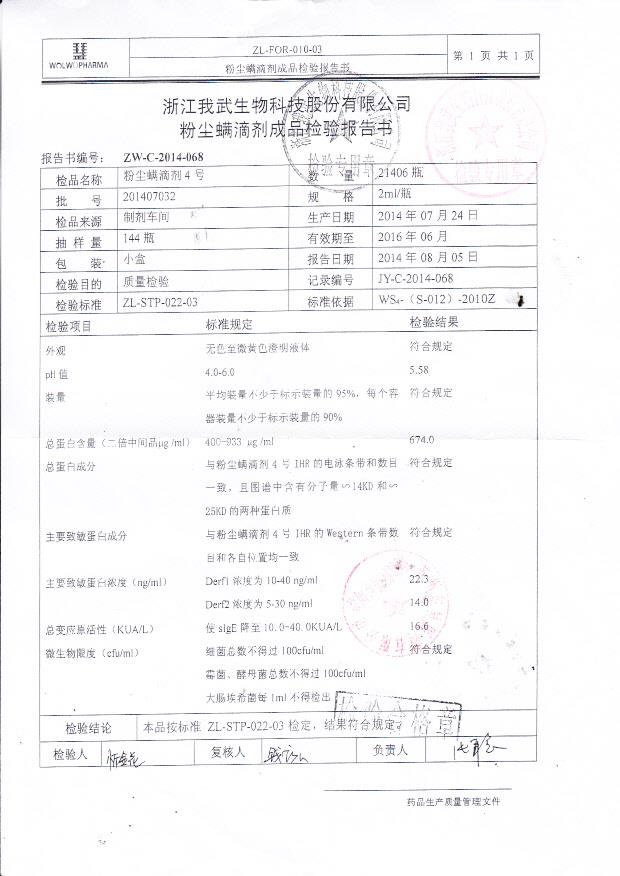 WOLWOPHARMA
ZL-FOR-010-03
粉尘螨滴剂成品检验报告书
第 1 页 共 1 页
浙江我武生物科技股份有限公司
粉尘螨滴剂成品检验报告书
报告书编号： ZW-C-2014-068
检验专用章
检品名称 粉尘螨滴剂 4 号 数 量 21406 瓶
批 号 201407032 规 格 2ml/瓶
检品来源 制剂车间 生产日期 2014 年 07 月 24 日
抽 样 量 144 瓶 有效期至 2016 年 06 月
包 装 小盒 报告日期 2014 年 08 月 05 日
检验目的 质量检验 记录编号 JY-C-2014-068
检验标准 ZL-STP-022-03 标准依据 WS₄-（S-012）-2010Z
检验项目 标准规定 检验结果
外观 无色至微黄色澄明液体 符合规定
pH 值 4.0-6.0 5.58
装量 平均装量不少于标示装量的 95%，每个容 符合规定
器装量不少于标示装量的 90%
总蛋白含量（二倍中间品μg /ml） 400-933 μg /ml 674.0
总蛋白成分 与粉尘螨滴剂 4 号 IHR 的电泳条带和数目 符合规定
一致，且图谱中含有分子量∽14KD 和∽
25KD 的两种蛋白质
主要致敏蛋白成分 与粉尘螨滴剂 4 号 IHR 的 Western 条带数 符合规定
目和各自位置均一致
主要致敏蛋白浓度（ng/ml） Derf1 浓度为 10-40 ng/ml 22.3
Derf2 浓度为 5-30 ng/ml 14.0
总变应原活性（KUA/L） 使 sIgE 降至 10.0-40.0KUA/L 16.6
微生物限度（cfu/ml） 细菌总数不得过 100cfu/ml 符合规定
霉菌、酵母菌总数不得过 100cfu/ml
大肠埃希菌每 1ml 不得检出
检验合格章
检验结论 本品按标准 ZL-STP-022-03 检定，结果符合规定。
检验人 复核人 负责人
药品生产质量管理文件